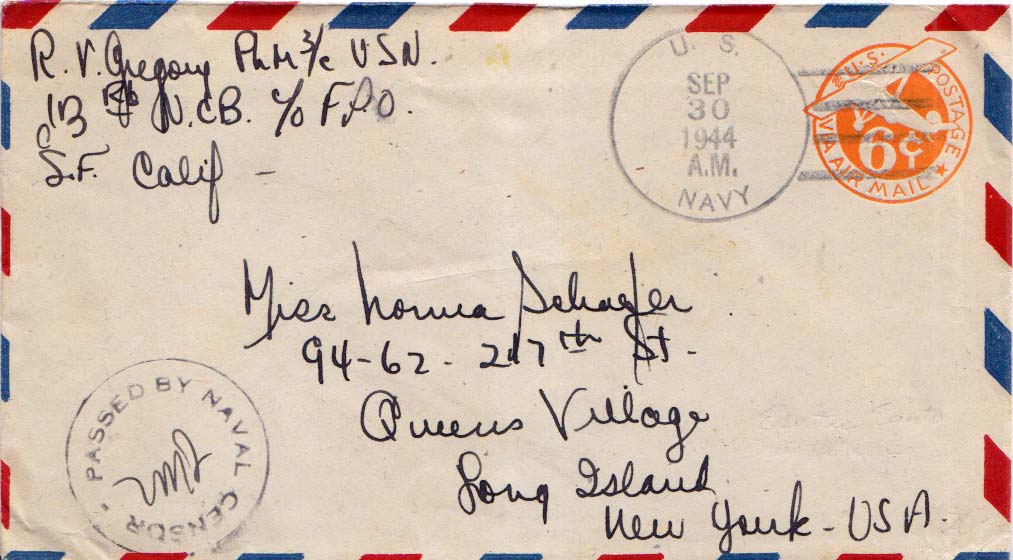 R. V. Gregory PhM 3/c USN.
113 N.C.B. c/o F.P.O.
S.F. Calif -
U. S.
SEP
30
1944
A.M.
NAVY
U.S. POSTAGE
6¢
VIA AIR MAIL
Miss Norma Schafer
94-62 - 217th St.
Queens Village
Long Island
New York - USA.
PASSED BY NAVAL CENSOR